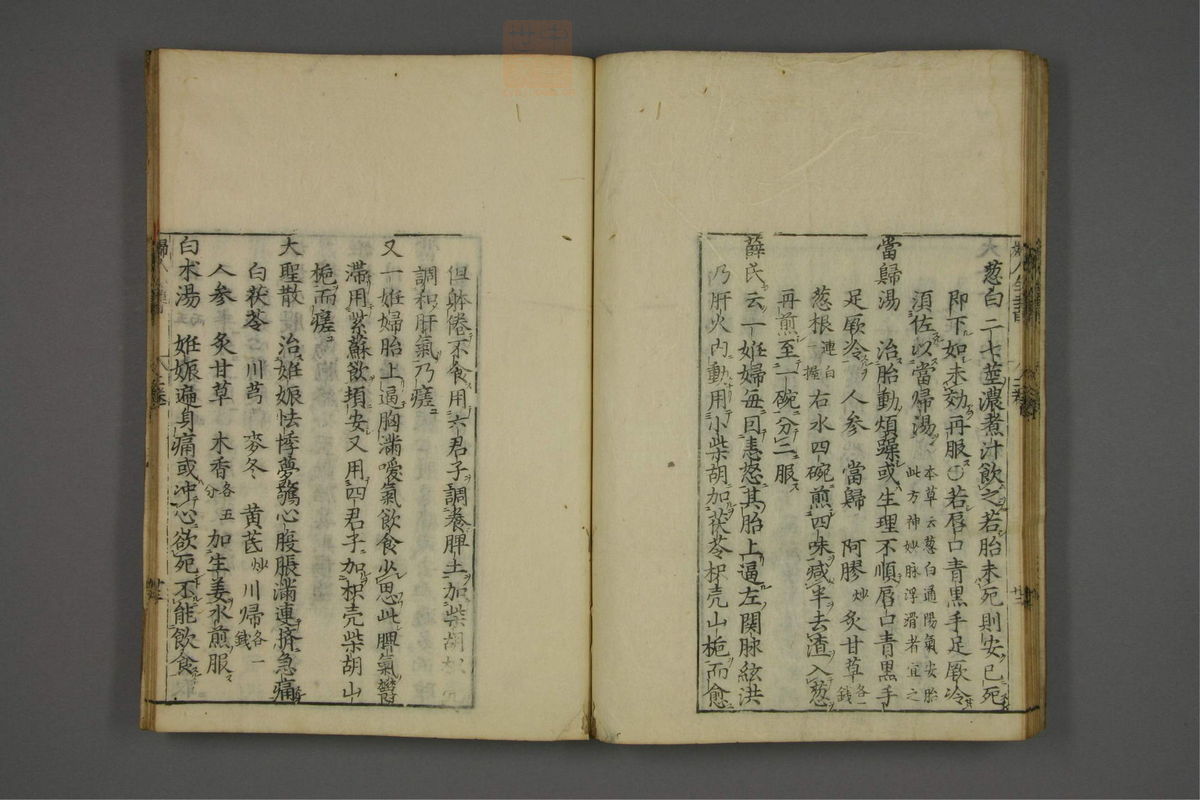 葱白 二七莖濃煮汁飲之若胎未死則安已死
即下如未効再服○若唇口青黒手足厥冷
須佐以當帰湯 本草云葱白通陽氣安胎
此方神妙脉浮滑者宜之
當歸湯 治胎動煩躁或生理不順唇口青黒手
足厥冷 人参 當歸 阿膠炒 炙甘草各一錢
葱根連白一握 右水四碗煎四味减半去渣入葱
再煎至一碗分三服
薛氏云一姙婦毎因恚怒其胎上逼左関脉絃洪
乃肝火内動用小柴胡加茯苓枳壳山梔而愈
但躰倦不食用六君子調養脾土加柴胡
調和肝氣乃瘥
又一姙婦胎上逼胸滿噯氣飲食少思此脾氣欝
滞用紫蘇飲頓安又用四君子加枳壳柴胡山
梔而瘥
大聖散 治姙娠怯悸夢驚心腹脹滿連臍急痛
白茯苓 川芎 麥冬 黄芪炒 川帰各一錢
人参 炙甘草 木香各五分 加生姜水煎服
白朮湯 姙娠遍身痛或冲心欲死不能飲食